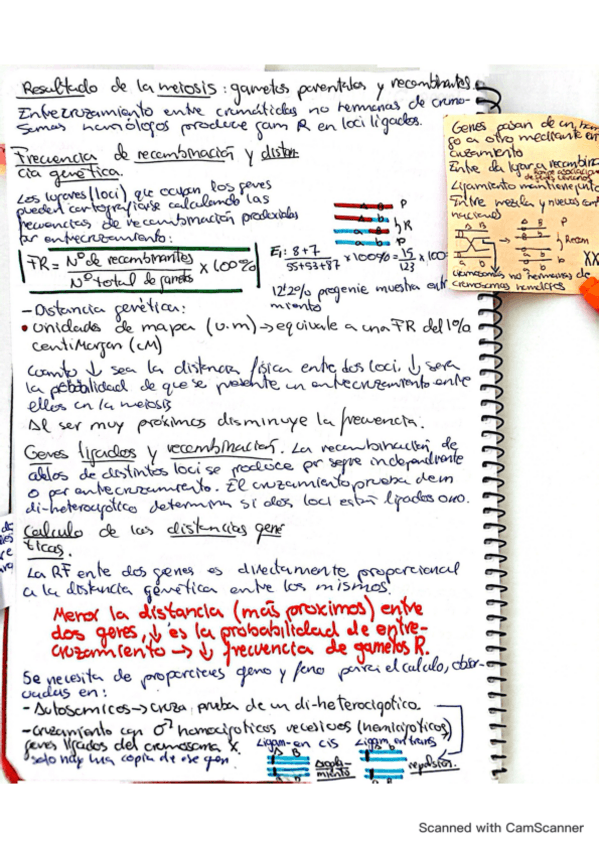 Resultado de la meiosis: gametos parentales y recombinantes.
Entrecruzamiento entre cromátidas no hermanas de cromo-
somas homólogos produce gam R en loci ligados.
Frecuencia de recombinación y distan
cia genética.
Los lugares (loci) que ocupan los genes
pueden cartografiarse calculando las
frecuencias de recombinación producidas
por entrecruzamiento:
FR = Nº de recombinantes / Nº total de gametos × 100%
Ej: 8+7 / 55+53+87 × 100% = 15 / 123 × 100
12'2% progenie muestra entr
miento
A B P
R
a b P
- Distancia genética:
• unidades de mapa (u.m) → equivale a una FR del 1%
centiMorgan (cM)
cuanto ↓ sea la distancia física entre dos loci, ↓ será
la probabilidad de que se presente un entrecruzamiento entre
ellos en la meiosis
Al ser muy próximos disminuye la frecuencia.
Genes ligados y recombinación. La recombinación de
alelos de distintos loci se produce por segre independiente
o por entrecruzamiento. El cruzamiento prueba de un
di-heterocigótico determina si dos loci están ligados o no.
Calculo de las distancias gené
ticas.
La RF ente dos genes es directamente proporcional
a la distancia genética entre los mismos.
Menor la distancia (más proximos) entre
dos genes, ↓ es la probabilidad de entre-
cruzamiento → ↓ frecuencia de gametos R.
Se necesita de proporciones geno y feno para el calculo, obser-
vadas en:
- Autosomicos → cruza prueba de un di-heterocigotico.
- Cruzamiento con ♂ homocigoticos recesivos (hemicigoticos)
genes ligados del cromosoma X.
solo hay una copia de ese gen.
Ligam-en cis
A B
a b
Acopla-
miento
Ligam en trans
A b
repulsion.
Genes pasan de un hom
go a otro mediante en
cruzamiento
Ente da lugar a recombina
Ligamiento mantiene junto
Entre mezcla y nuevas com
naciones
P
Recom
P
XX
cromosomas no hermanas de
cromosomas homologos
Scanned with CamScanner